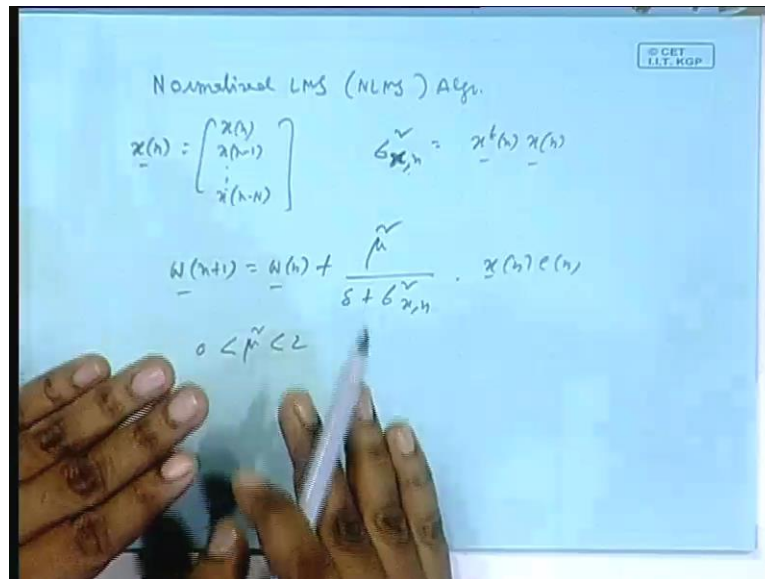 © CET
I.I.T. KGP
Normalized LMS (NLMS) Algo.
x(n) = [ x(n) x(n-1) ⋮ x(n-N) ] σ²x,n = xᵗ(n) x(n)
w(n+1) = w(n) + μ̃ / (δ + σ²x,n) . x(n) e(n)
0 < μ̃ < 2